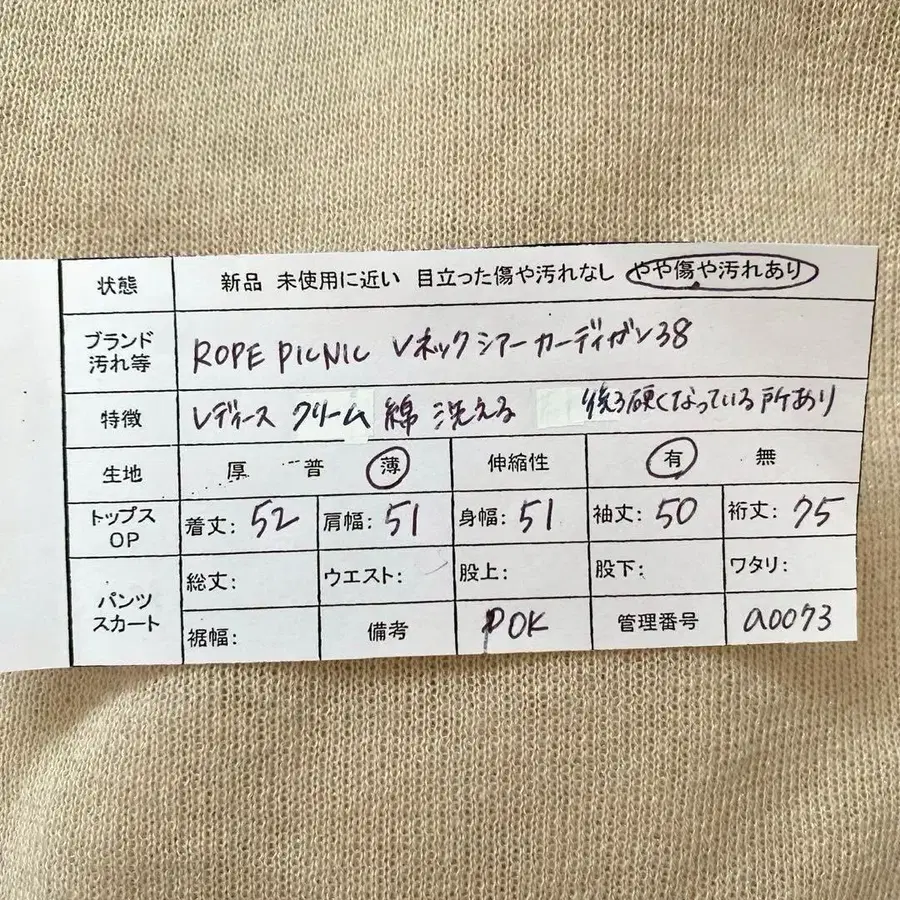 状態 新品 未使用に近い 目立った傷や汚れなし やや傷や汚れあり
ブランド
汚れ等 ROPE PICNIC Vネックシアーカーディガン38
特徴 レディース クリーム 綿 洗える 後ろ硬くなっている所あり
生地 厚 普 薄 伸縮性 有 無
トップス
OP 着丈: 52 肩幅: 51 身幅: 51 袖丈: 50 裄丈: 75
パンツ
スカート 総丈: ウエスト: 股上: 股下: ワタリ:
裾幅: 備考 POK 管理番号 a0073